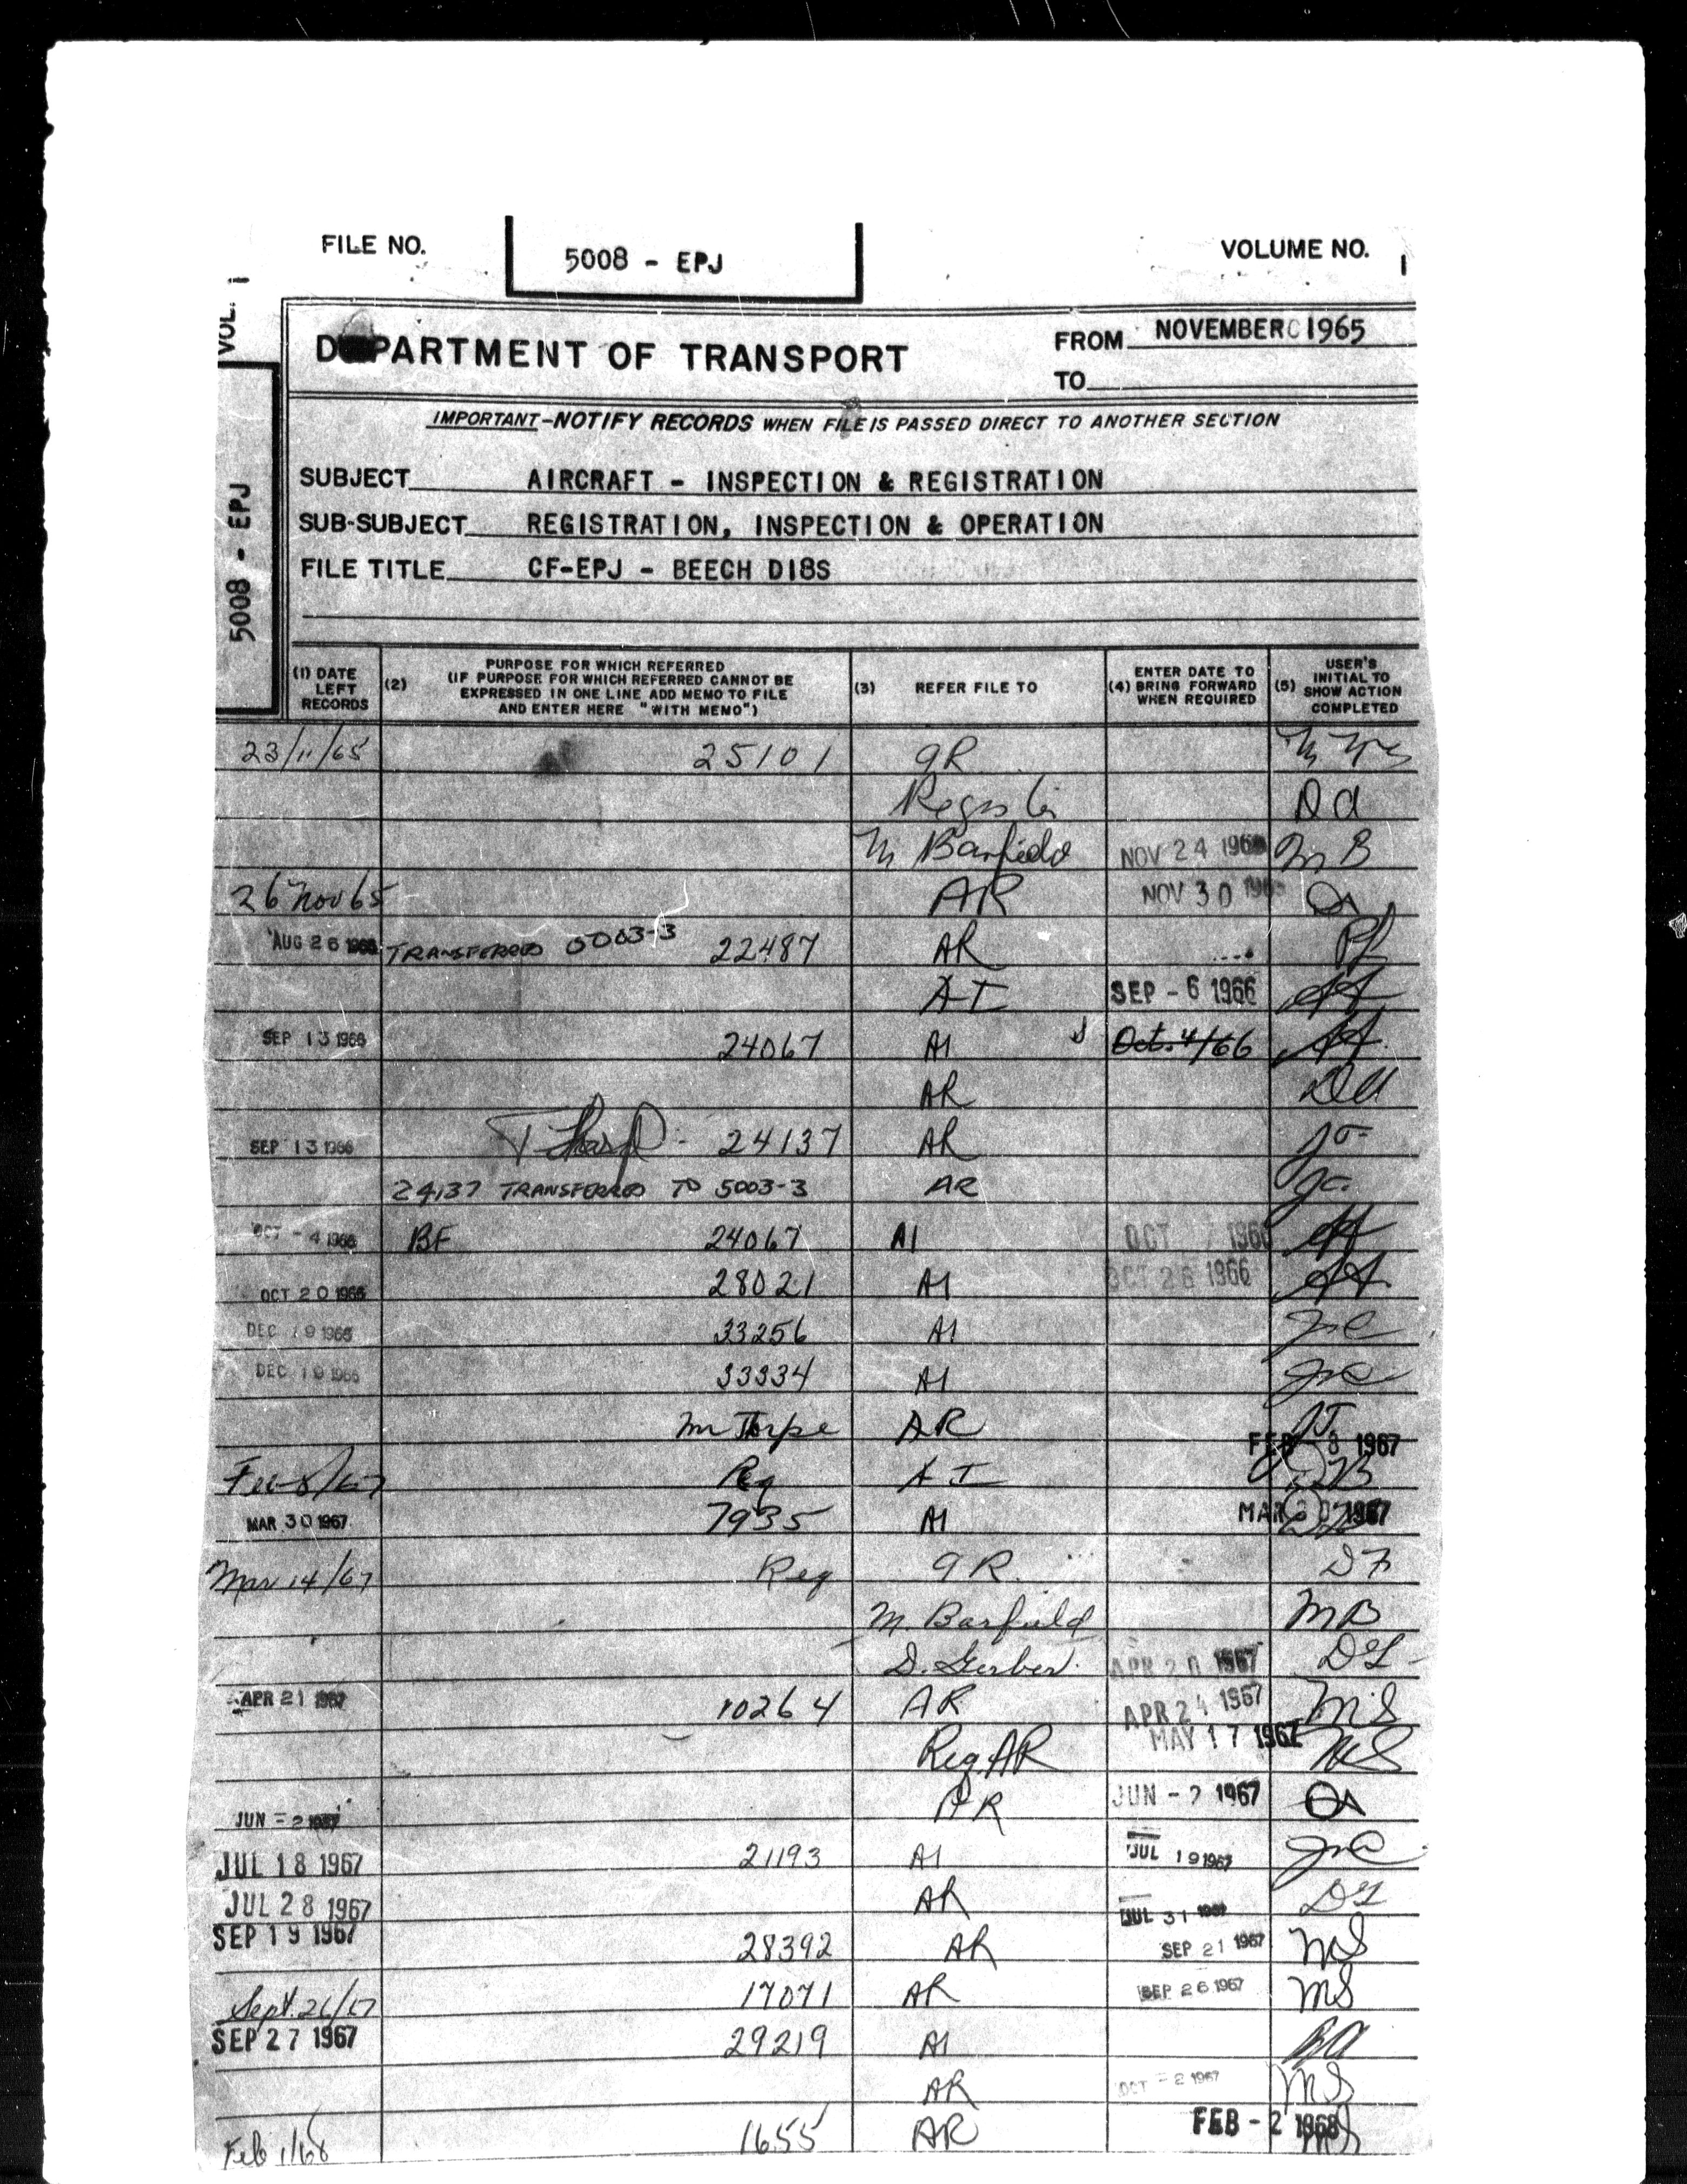 FILE NO. 5008 - EPJ VOLUME NO. 1
VOL. 1
5008 - EPJ
DEPARTMENT OF TRANSPORT
FROM NOVEMBER 1965
TO
IMPORTANT-NOTIFY RECORDS WHEN FILE IS PASSED DIRECT TO ANOTHER SECTION
SUBJECT AIRCRAFT - INSPECTION & REGISTRATION
SUB-SUBJECT REGISTRATION, INSPECTION & OPERATION
FILE TITLE CF-EPJ - BEECH D18S
(1) DATE LEFT RECORDS
(2) PURPOSE FOR WHICH REFERRED
(IF PURPOSE FOR WHICH REFERRED CANNOT BE
EXPRESSED IN ONE LINE ADD MEMO TO FILE
AND ENTER HERE "WITH MEMO")
(3) REFER FILE TO
ENTER DATE TO
(4) BRING FORWARD
WHEN REQUIRED
USER'S
INITIAL TO
(5) SHOW ACTION
COMPLETED
23/11/65 25101 AR
DA
M Barfield NOV 24 196 MB
26 Nov 65 AR NOV 30
AUG 26 1966 TRANSFERRED 5003-3 22487 AR
AI SEP - 6 1966
SEP 13 1966 24067 AI Oct. 4/66
AR DA
SEP 13 1966 24137 AR
24137 TRANSFERRED TO 5003-3 AR
OCT - 4 1966 BF 24067 AI OCT 7 1966
OCT 20 1966 28021 AI OCT 26 1966
DEC 19 1966 33256 AI
DEC 19 1966 33334 AI
Mr Thorpe AR FEB 8 1967
Feb 8/67 Reg AI
MAR 30 1967 7935 AI MAR 30 1967
Mar 14/67 Reg AR DF
M. Barfield MB
D. Gerber APR 20 1967 DG
APR 21 1967 10264 AR APR 24 1967 MS
Reg AR MAY 17 1967 MS
JUN - 2 1967 AR JUN - 2 1967
JUL 18 1967 21193 AI JUL 19 1967
JUL 28 1967 AR JUL 31 1967 DG
SEP 19 1967 28392 AR SEP 21 1967 MS
Sept. 26/67 17071 AR SEP 26 1967 MS
SEP 27 1967 29219 AI BA
AR OCT - 2 1967 MS
Feb 1/68 1655 AR FEB - 2 1968 MS